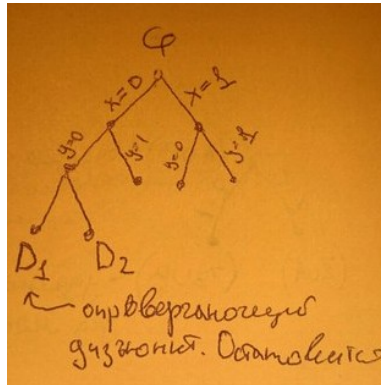 φ
x=0 x=1
y=0 y=1 y=0 y=1
D₁ D₂
опровергающий
дизъюнкт. Остановится